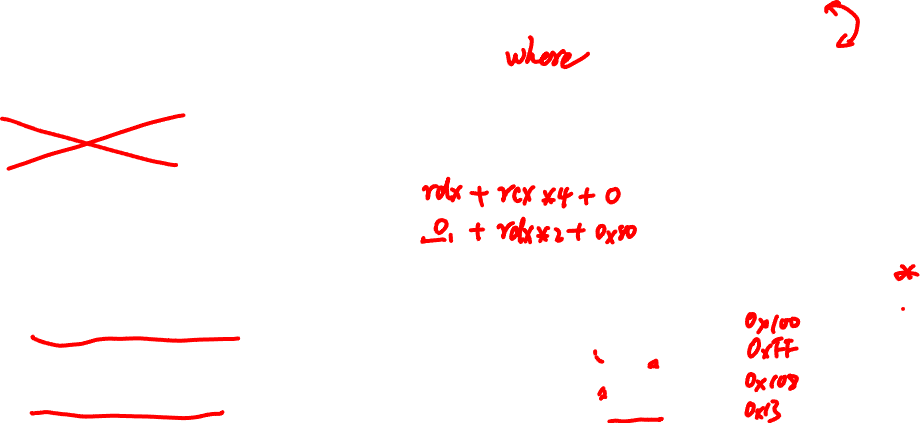 where
rdx + rcx * 4 + 0
0 + rdx * 2 + 0x80
*
0x100
0xFF
0x108
0x13